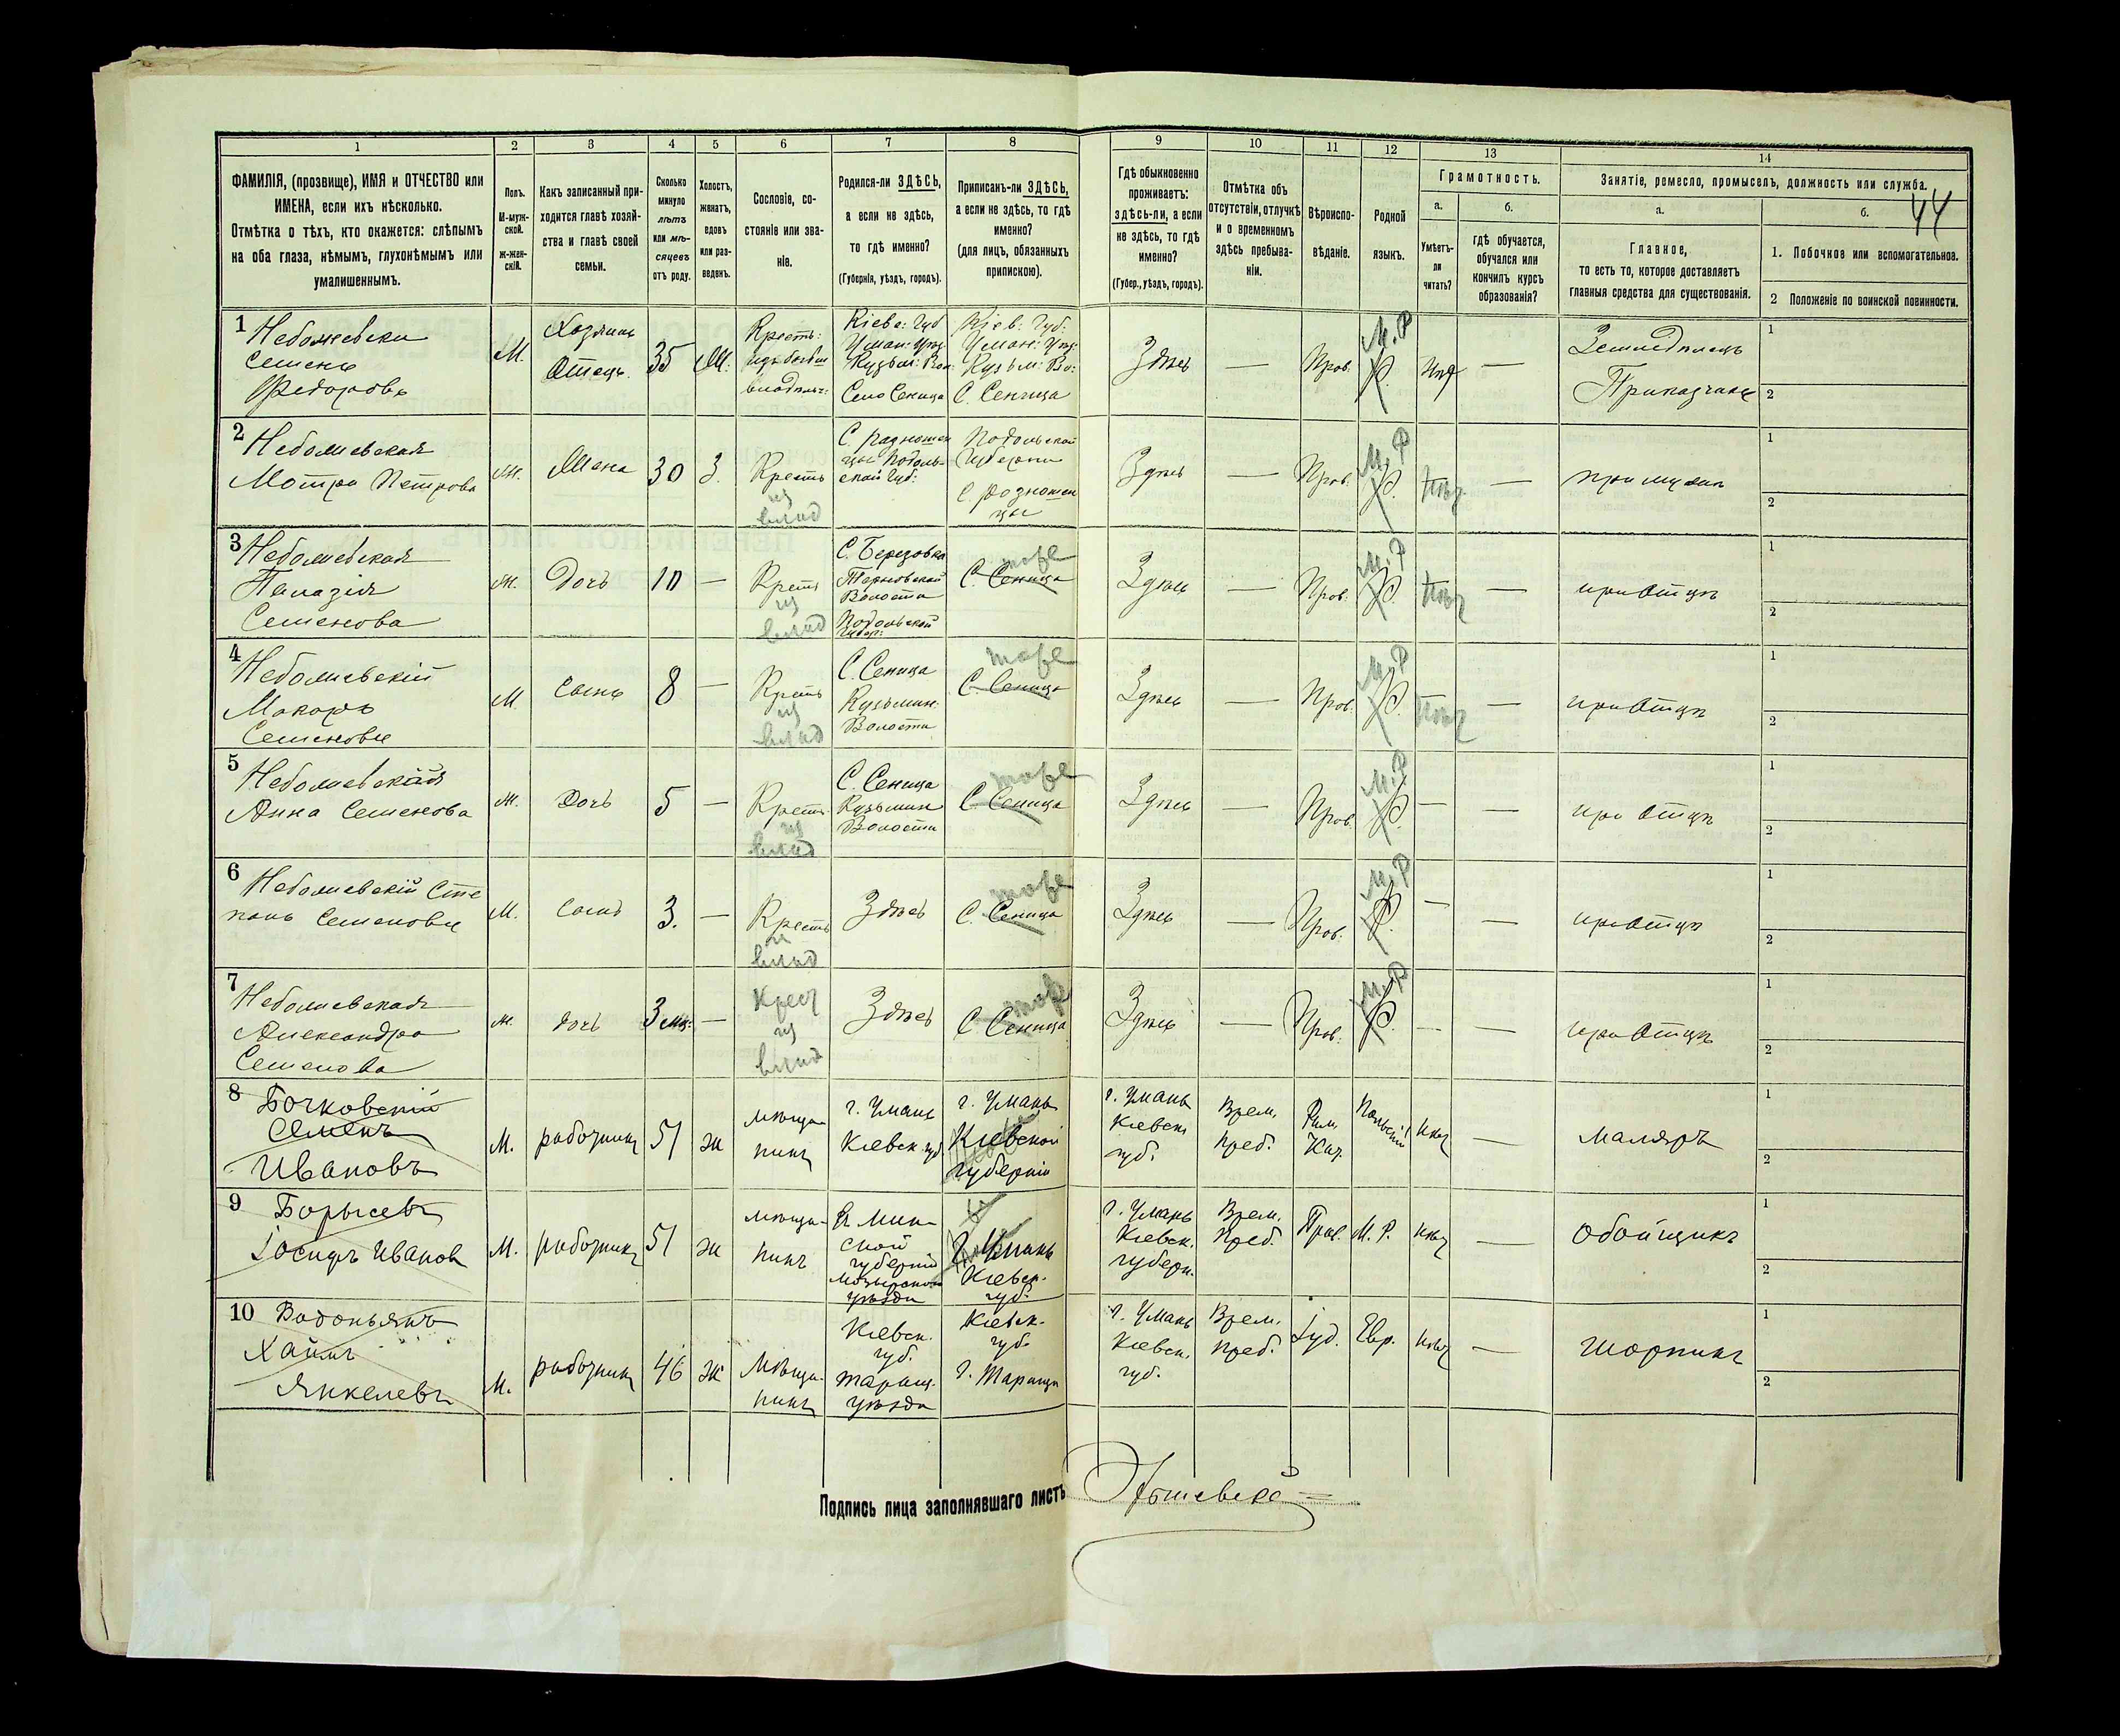 1 2 3 4 5 6 7 8 9 10 11 12 13 14
44
ФАМИЛІЯ, (прозвище), ИМЯ и ОТЧЕСТВО или
ИМЕНА, если ихъ нѣсколько.
Отмѣтка о тѣхъ, кто окажется: слѣпымъ
на оба глаза, нѣмымъ, глухонѣмымъ или
умалишеннымъ.
Полъ.
М-муж-
ской.
ж-жен-
скій.
Какъ записанный при-
ходится главѣ хозяй-
ства и главѣ своей
семьи.
Сколько
минуло
лѣтъ
или мѣ-
сяцевъ
отъ роду.
Холостъ,
женатъ,
вдовъ
или раз-
веденъ.
Сословіе, со-
стояніе или зва-
ніе.
Родился-ли ЗДѢСЬ,
а если не здѣсь,
то гдѣ именно?
(Губернія, уѣздъ, городъ).
Приписанъ-ли ЗДѢСЬ,
а если не здѣсь, то гдѣ
именно?
(для лицъ, обязанныхъ
припискою).
Гдѣ обыкновенно
проживаетъ:
здѣсь-ли, а если
не здѣсь, то гдѣ
именно?
(Губер., уѣздъ, городъ).
Отмѣтка объ
отсутствіи, отлучкѣ
и о временномъ
здѣсь пребыва-
ніи.
Вѣроиспо-
вѣданіе.
Родной
языкъ.
Грамотность.
а.
Умѣетъ-
ли
читать?
б.
гдѣ обучается,
обучался или
кончилъ курсъ
образованія?
Занятіе, ремесло, промыселъ, должность или служба.
а.
Главное,
то есть то, которое доставляетъ
главныя средства для существованія.
б.
1. Побочное или вспомогательное.
2 Положеніе по воинской повинности.
1
Семенъ
Федоровъ
М.
Хозяинъ
Отецъ
35
Ж.
Кіев: Губ:
Уман: Уѣз:
Кузьм: Во:
С. Сеница
Здѣсь
—
Прав.
М.Р
—
Приказчикъ
1
2
2
Мотря Петрова
Ж.
Жена
30
З.
Крест
из
влад
Подольской
Губерни
Здѣсь
—
Прав.
М.Р
—
при мужѣ
1
2
3
Семенова
Ж.
Дочь
10
—
Крест
из
влад
С. Березовка
Волости
Подольской
Губер:
С. Сеница
тоже
Здѣсь
—
Прав.
М.Р
—
при Отцѣ
1
2
4
Макаръ
М.
Сынъ
8
—
Крест
из
влад
С. Сеница
Кузьмин:
Волости
С. Сеница
тоже
Здѣсь
—
Прав.
М.Р
—
при Отцѣ
1
2
5
Анна Семенова
Ж.
Дочь
5
—
Крест
из
влад
С. Сеница
Кузьмин
Волости
С. Сеница
тоже
Здѣсь
—
Прав.
М.Р
—
—
при Отцѣ
1
2
6
М.
Сынъ
3.
—
Крест
из
влад
Здѣсь
С. Сеница
тоже
Здѣсь
—
Прав.
М.Р
—
—
при Отцѣ
1
2
7
Александра
Семенова
Ж.
дочь
3 мц:
—
Крест
из
влад
Здѣсь
С. Сеница
тоже
Здѣсь
—
Прав.
М.Р
—
—
при Отцѣ
1
2
8 Бочковскій
Семенъ
Ивановъ
М.
работникъ
51
ж
мѣща-
нинъ
г. Умань
Кіевск. губ.
г. Умань
Кіевской
губерніи
г. Умань
Кіевск.
губ.
Врем.
преб.
Рим.
Кат.
Польскій
—
маляръ
1
2
9 Борысевъ
Іосифъ Иванов
М.
работникъ
51
ж
мѣща-
нинъ
В Мин-
ской
губерніи
уѣзда
г. Умань
Кіевск.
губ.
г. Умань
Кіевск.
губерн.
Врем.
Преб.
Прав.
М. Р.
—
обойщикъ
1
2
10 Водоньянъ
Хаимъ
Янкелевъ
М.
работникъ
46
ж
Мѣща-
нинъ
Кіевск.
губ.
таращ.
уѣзда
Кіевск.
губ.
г. Тараща
г. Умань
Кіевск.
губ.
Врем.
преб.
Іуд.
Евр.
—
шорникъ
1
2
Подпись лица заполнявшаго листъ